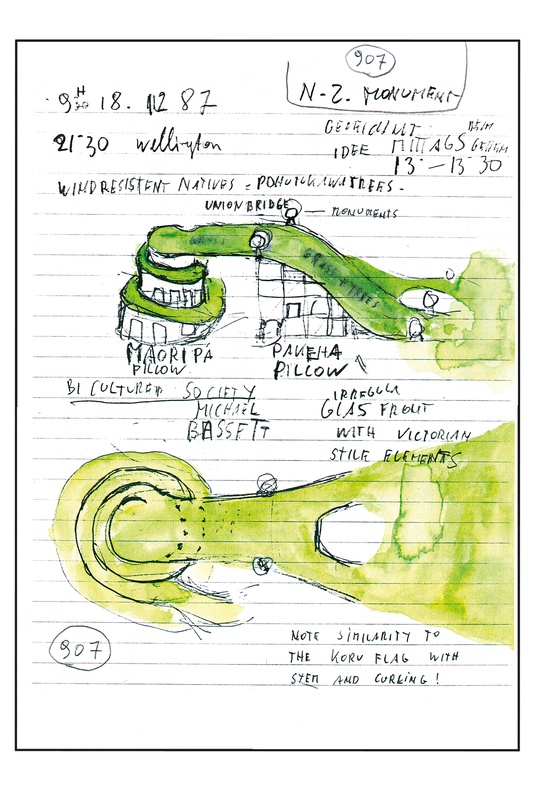 907
N-Z. MONUMENT
9 H 30 18. 12 87
GEZEICHNET
21·30 Wellington
IDEE MITTAGS
13 — 13 30
WINDRESISTENT NATIVES = POHUTUKAWATREES -
UNIONBRIDGE
MONUMENTS
GRASS + TREES
MAORI PA
PILLOW
PAKEHA
PILLOW
BI CULTURED SOCIETY
MICHAEL
BASSETT
IRREGULA
GLAS FRONT
WITH VICTORIAN
STILE ELEMENTS
907
NOTE SIMILARITY TO
THE KORU FLAG WITH
STEM AND CURLING!